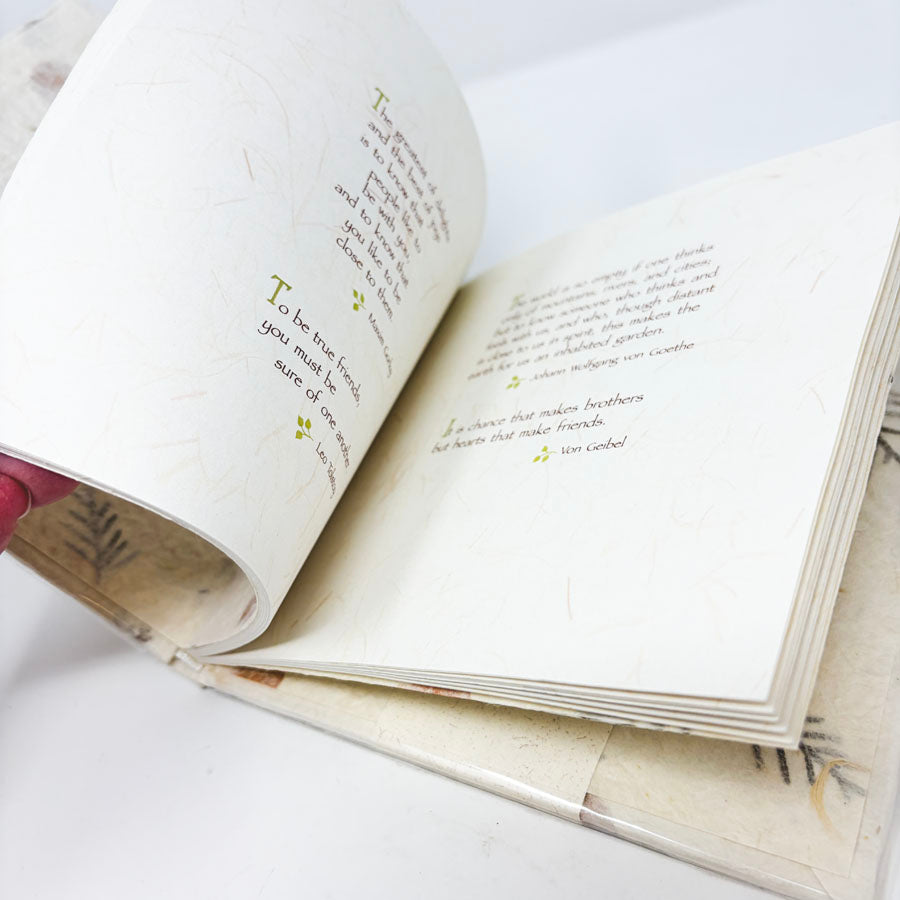 The greatest of delights
and the best of joys
is to know that
people like to
be with you,
and to know that
you like to be
close to them.
Maxim Gorky
To be true friends,
you must be
sure of one another.
Leo Tolstoy
The world is so empty if one thinks
only of mountains, rivers, and cities;
but to know someone who thinks and
feels with us, and who, though distant
is close to us in spirit, this makes the
earth for us an inhabited garden.
Johann Wolfgang von Goethe
It is chance that makes brothers
but hearts that make friends.
Von Geibel